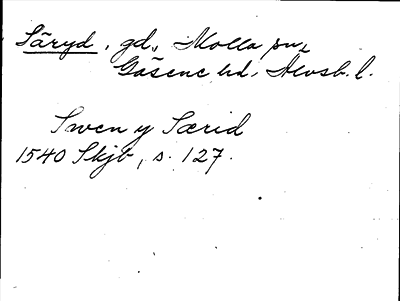 Säryd, gd., Molla sn.,
Gäsene hd, Älvsb. l.
Swen y Særid
1540 Skjb, s. 127.